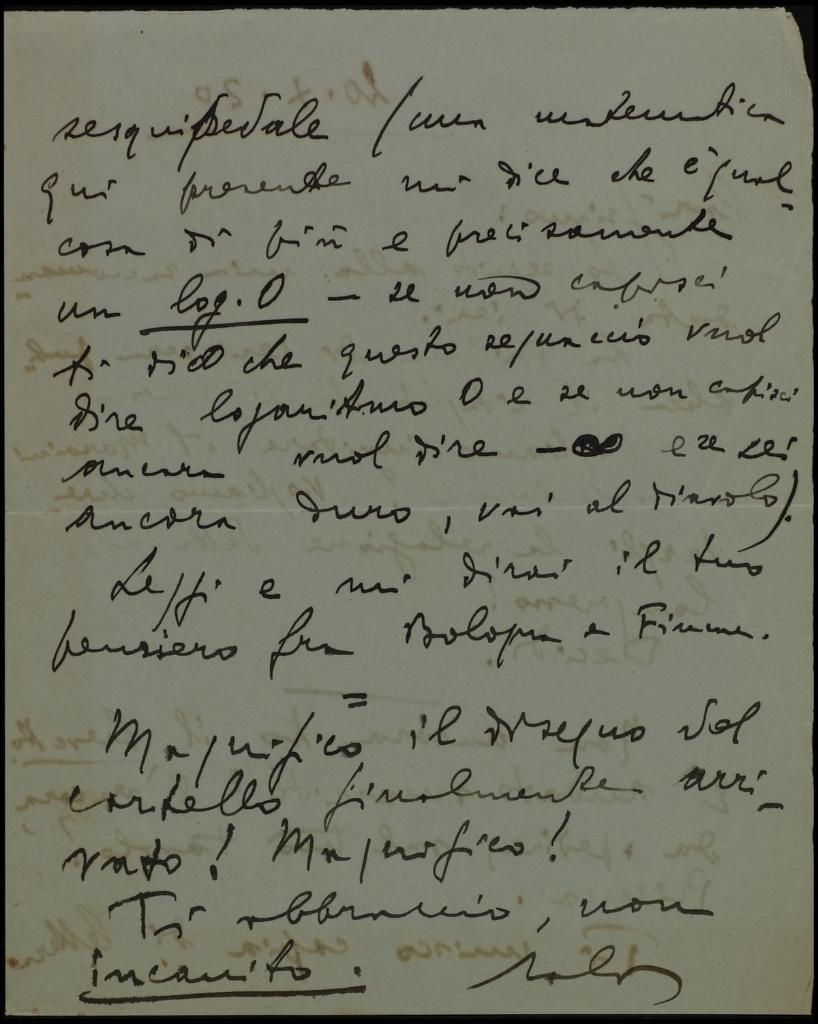 sesquipedale (una matematica
qui presente mi dice che è qual-
cosa di più e precisamente
un log. 0 — se non capisci
ti dico che questo segnaccio vuol
dire logaritmo 0 e se non capisci
ancora vuol dire -∞ e se sei
ancora duro, vai al diavolo).
Leggi e mi dirai il tuo
pensiero fra Bologna e Fiume.
=
Magnifico il disegno del
cartello finalmente arri-
vato! Magnifico!
Ti abbraccio, non
incanito.